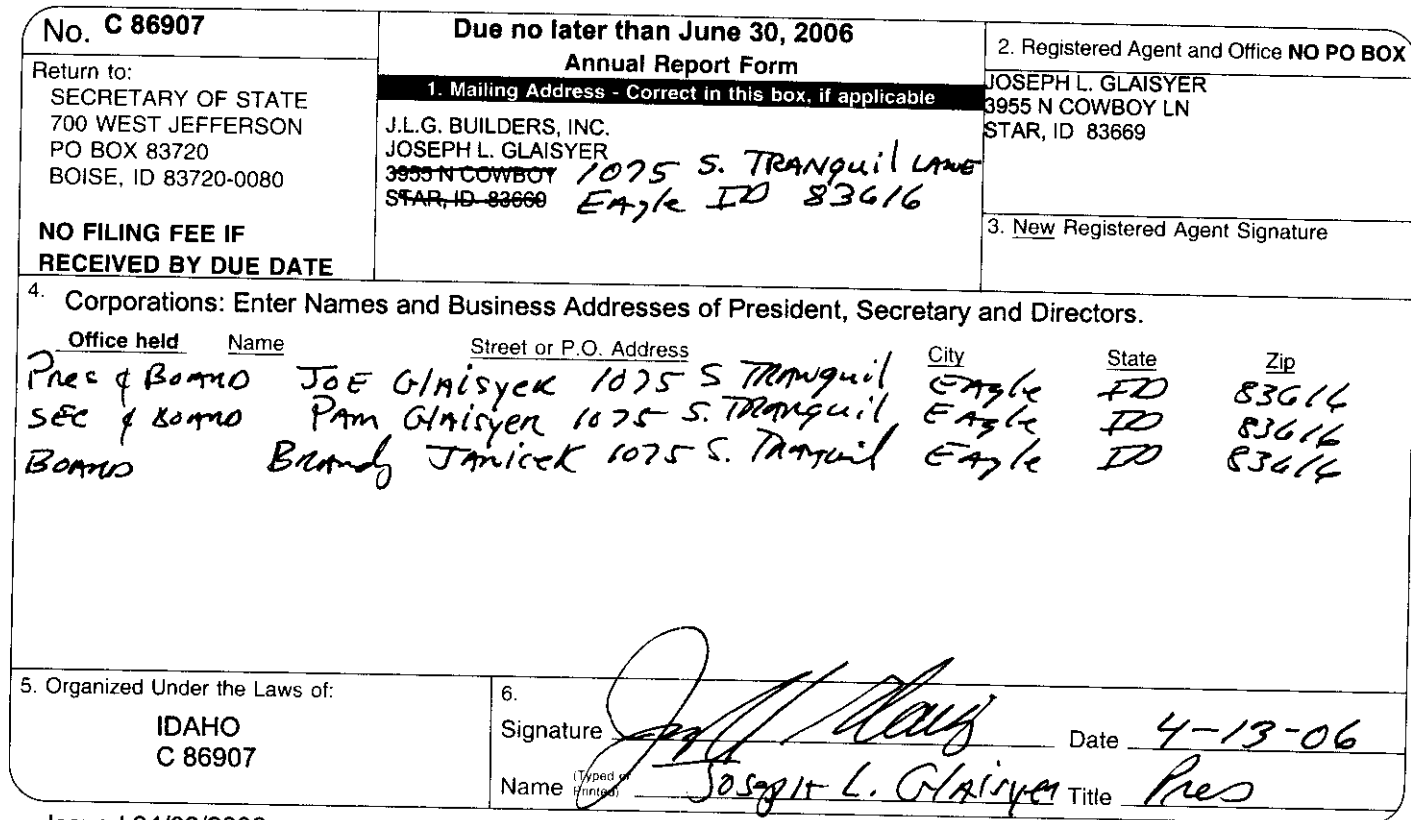 No. C 86907
Return to:
SECRETARY OF STATE
700 WEST JEFFERSON
PO BOX 83720
BOISE, ID 83720-0080
NO FILING FEE IF
RECEIVED BY DUE DATE
Due no later than June 30, 2006
Annual Report Form
1. Mailing Address - Correct in this box, if applicable
J.L.G. BUILDERS, INC.
JOSEPH L. GLAISYER
3955 N COWBOY 1075 S. TRANquil LANE
STAR, ID 83669 EAgle ID 83616
2. Registered Agent and Office NO PO BOX
JOSEPH L. GLAISYER
3955 N COWBOY LN
STAR, ID 83669
3. New Registered Agent Signature
4. Corporations: Enter Names and Business Addresses of President, Secretary and Directors.
Office held Name Street or P.O. Address City State Zip
Pres & BOARD JOE GlAisyer 1075 S TRANquil EAgle ID 83616
SEC & BOARD PAm GlAisyer 1075 S. TRANquil EAgle ID 83616
BOARD BRAndy JAnicek 1075 S. TRANquil EAgle ID 83616
5. Organized Under the Laws of:
IDAHO
C 86907
6.
Signature Date 4-13-06
Name (Typed or Printed) JOSEpH L. GlAisyer Title Pres